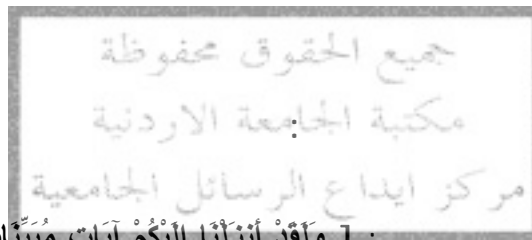 جميع الحقوق محفوظة
مكتبة الجامعة الاردنية
:
مركز ايداع الرسائل الجامعية
: [ وَلَقَدْ أَنْزَلْنَا إِلَيْكُمْ آيَاتٍ